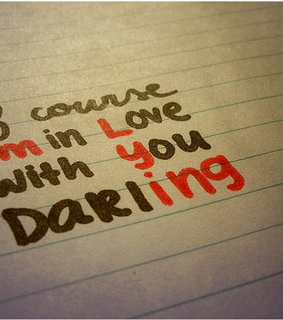 course
m in Love
with you
Darling